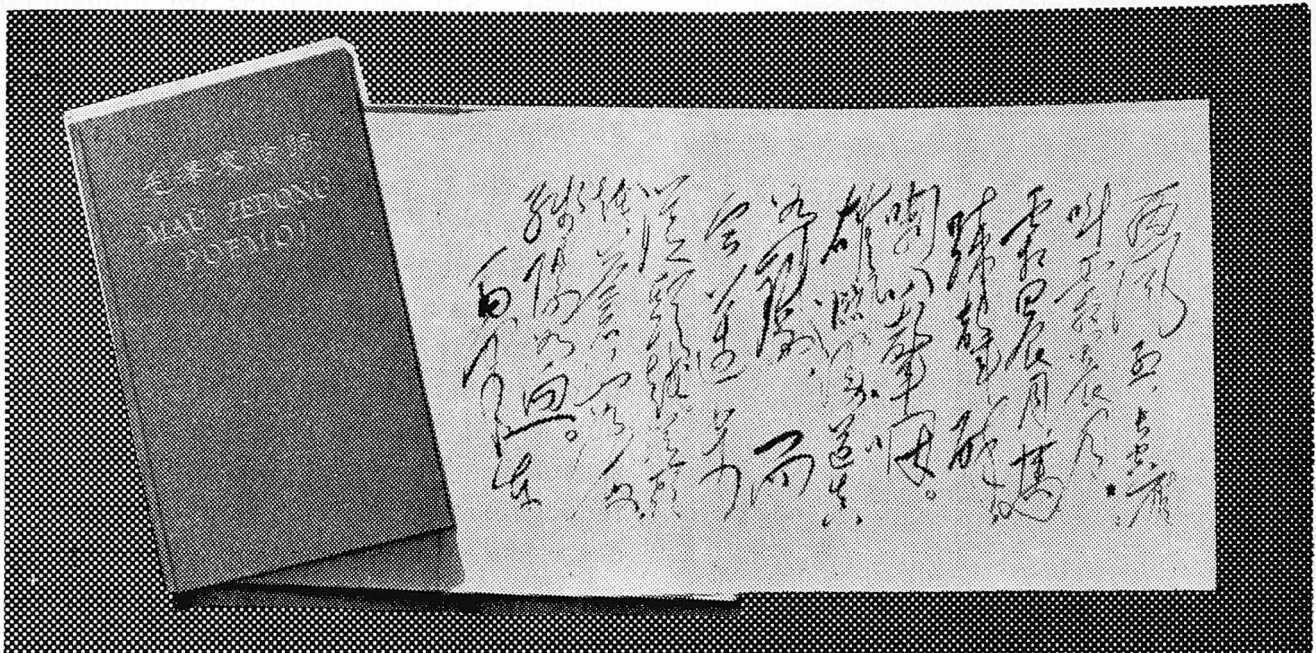 毛澤東詩詞
MAŬ ZEDONG
POEMOJ
西風烈,長空雁
叫霜晨月。
霜晨月,馬
蹄聲碎,
喇叭聲咽。
雄關漫道真
如鐵,而
今邁步
從頭越,從頭
越,蒼山如海,
殘陽如血。
毛澤東